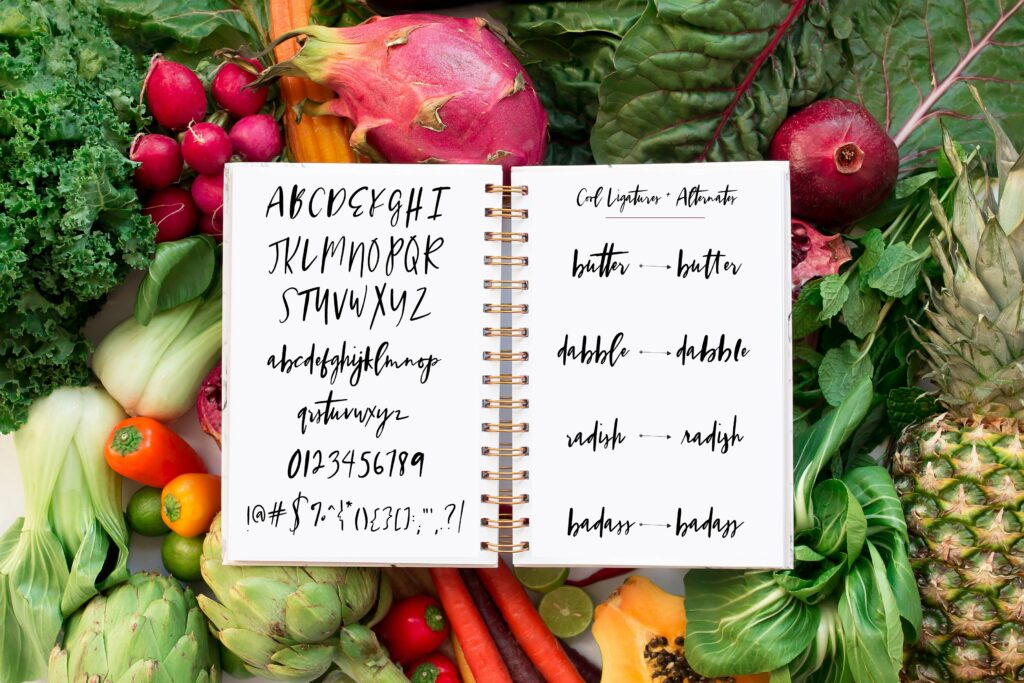 ABCDEFGHI
JKLMNOPQR
STUVWXYZ
abcdefghijklmnop
qrstuvwxyz
0123456789
!@#$%^{*(){}[]:;"',.?/
Cool Ligatures + Alternates
butter → butter
dabble → dabble
radish → radish
badass → badass